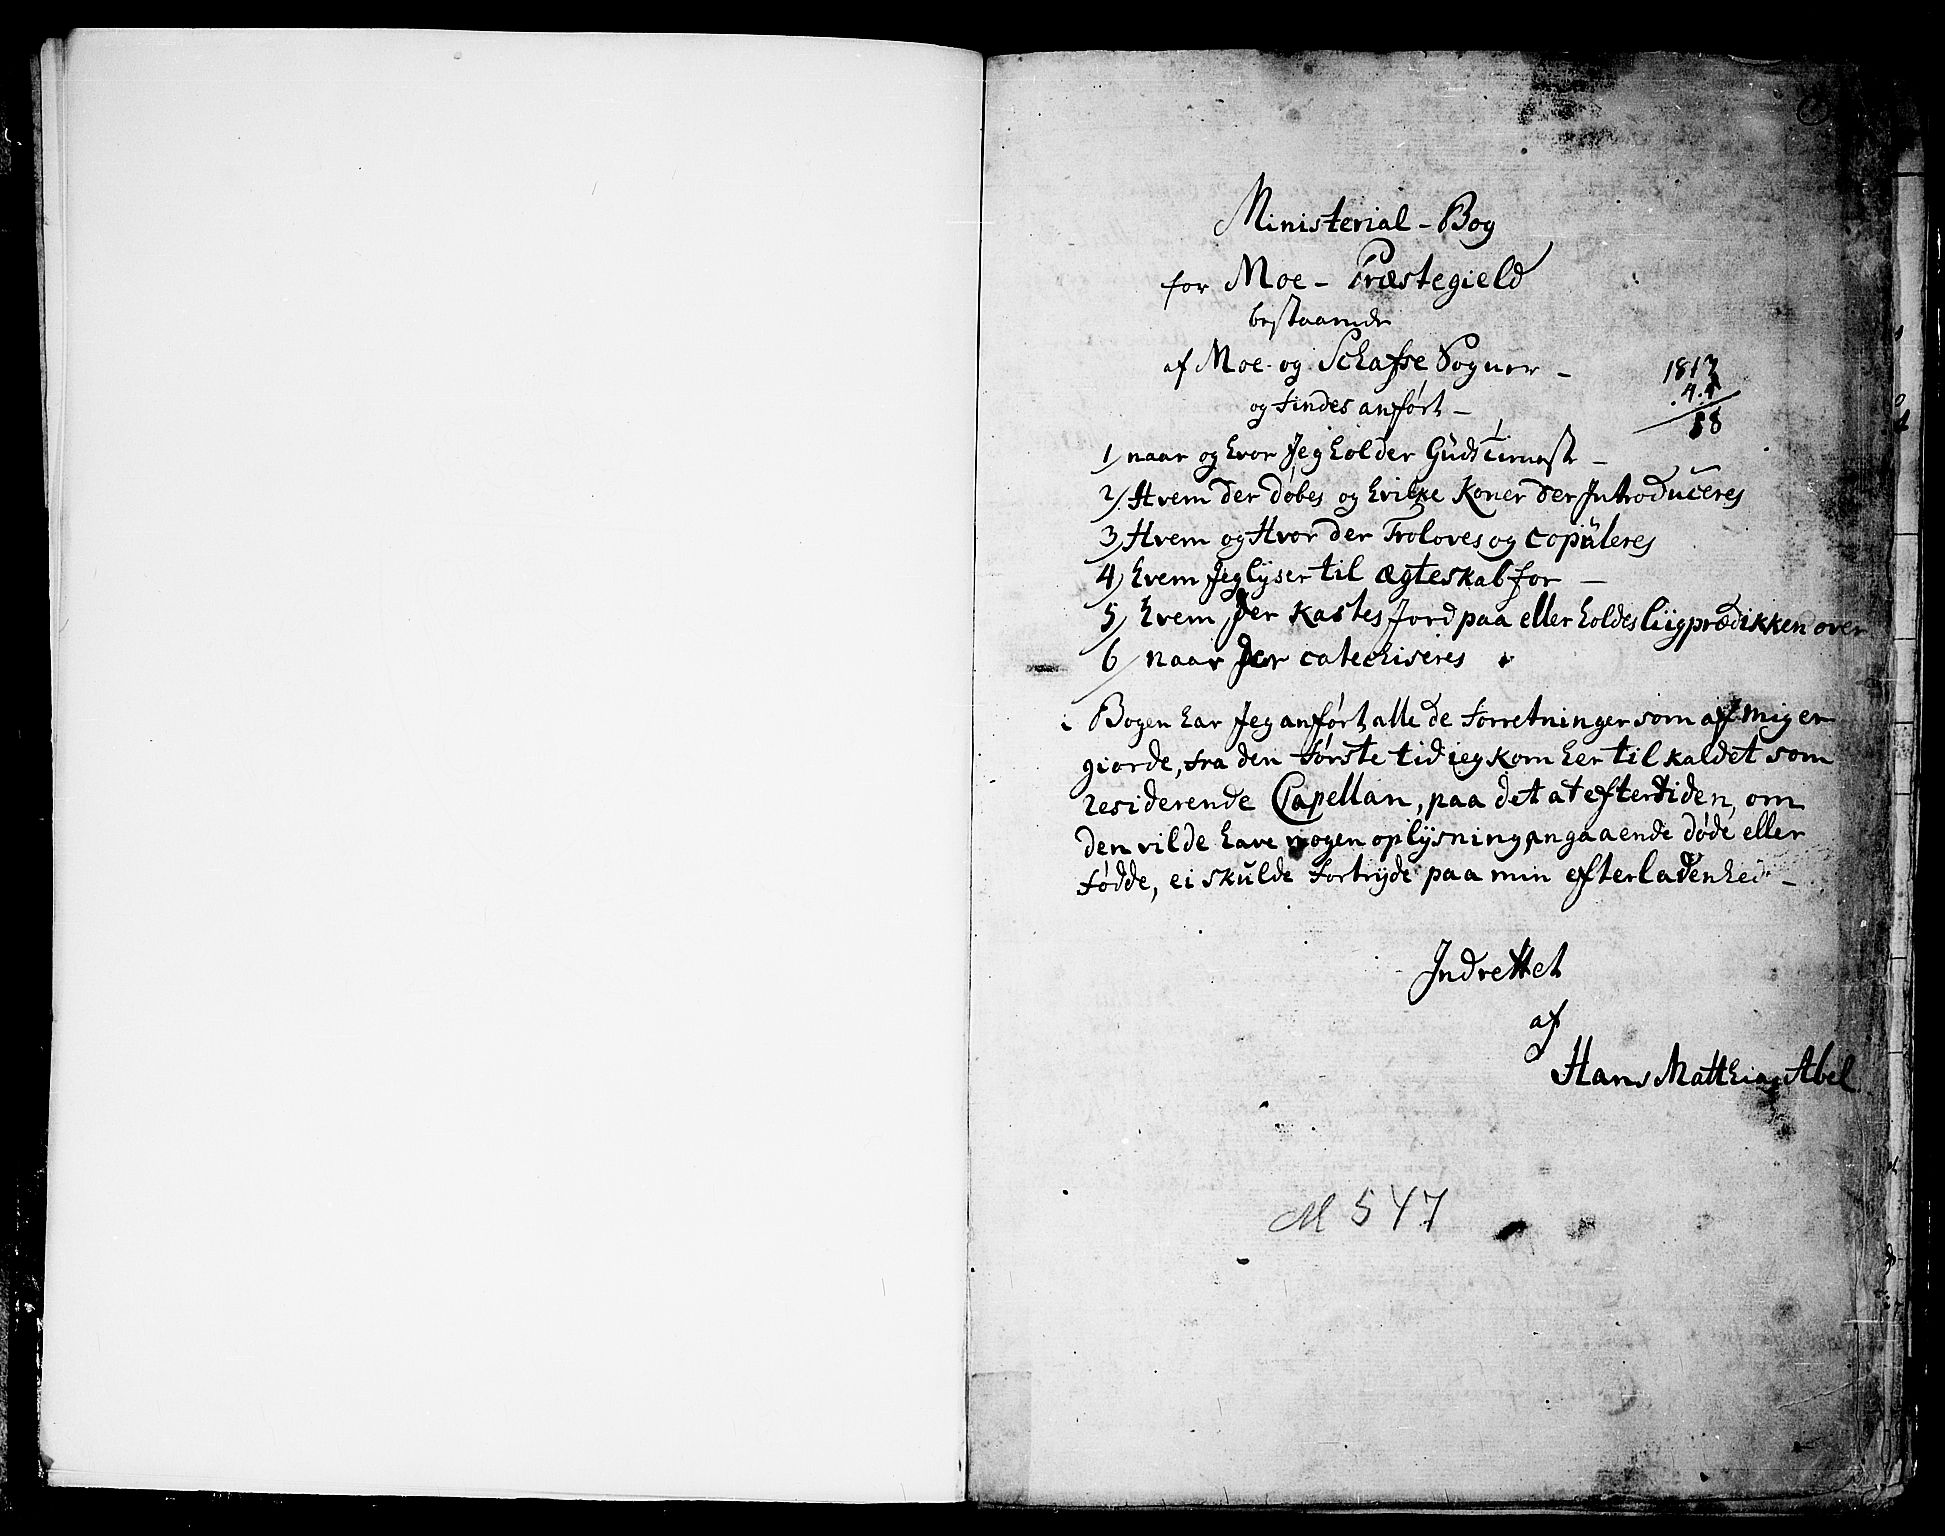 Ministerial-Bog
for Moe- Præstegield
bestaaende
af Moe- og Schafse Sogner -
og findes anført -
1813
.4.4
58
1/ naar og hvor Jeg holder Gudstieneste -
2/ Hvem der døbes og hvilke Koner der Introduceres
3/ Hvem og Hvor der Troloves og copüleres
4/ hvem Jeg lyser til ægteskab for -
5/ hvem der kastes Jord paa eller holdes liigprædikken over
6/ naar der catechiseres
i Bogen har Jeg anført alle de forretninger som af mig er
giorde, fra den første tid ieg kom her til kaldet som
residerende Capellan, paa det at eftertiden, om
den vilde have nogen oplysning angaaende døde eller
fødde, ei skulde fortryde paa min efterladenhed -
Indrettet
af
Hans Matthias Abel
M 547